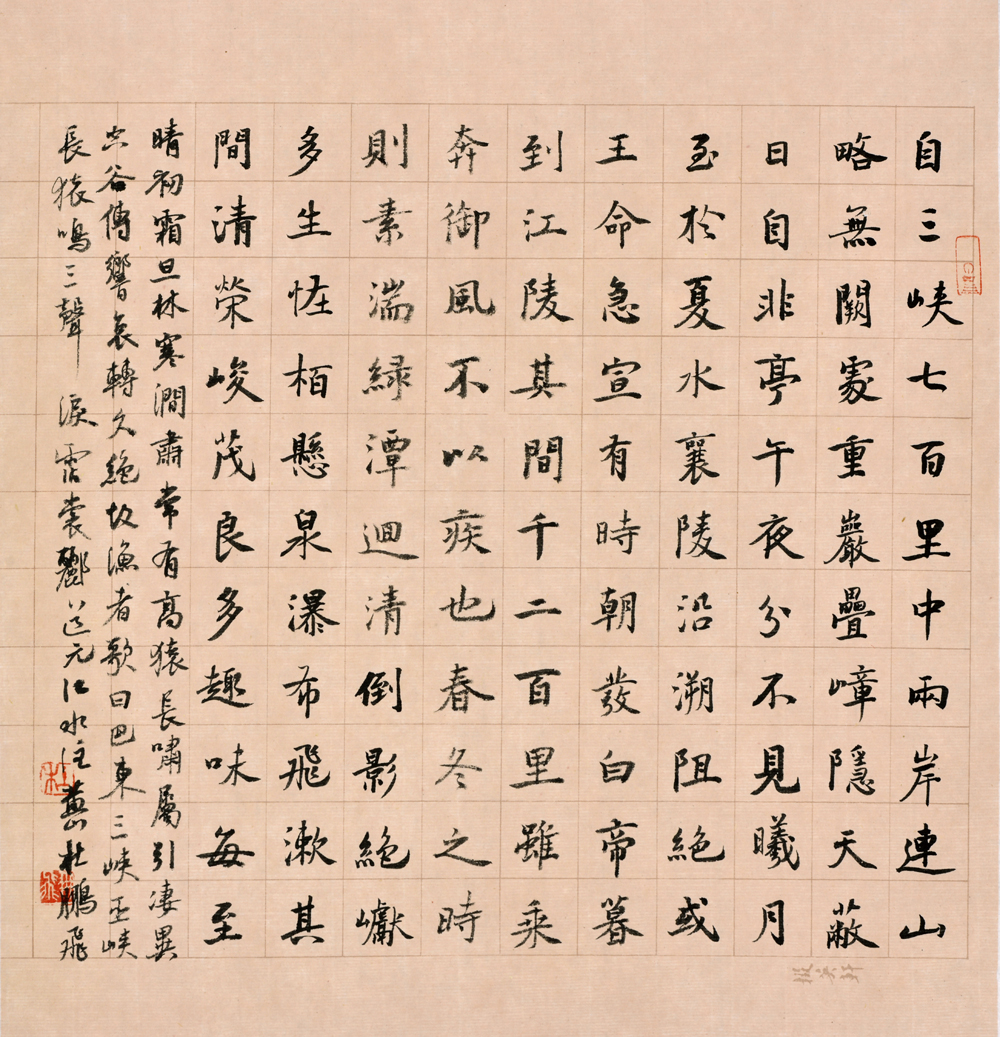 自三峽七百里中兩岸連山
略無闕處重巖疊嶂隱天蔽
日自非亭午夜分不見曦月
至於夏水襄陵沿溯阻絕或
王命急宣有時朝發白帝暮
到江陵其間千二百里雖乘
奔御風不以疾也春冬之時
則素湍綠潭迴清倒影絕巘
多生怪柏懸泉瀑布飛漱其
間清榮峻茂良多趣味每至
晴初霜旦林寒澗肅常有高猿長嘯屬引凄異
空谷傳響哀轉久絕故漁者歌曰巴東三峽巫峽
長猿鳴三聲淚霑裳酈道元江水注燕山杜鵬飛